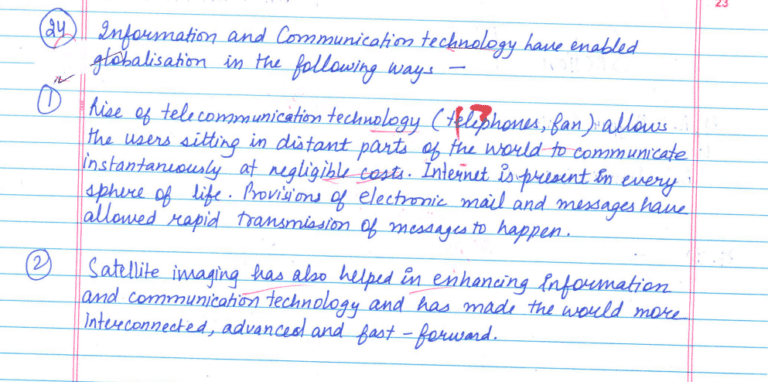 23
24 Information and Communication technology have enabled
globalisation in the following ways —
1 Rise of telecommunication technology (telephones, fan) allows
the users sitting in distant parts of the world to communicate
instantaneously at negligible costs. Internet is present in every
sphere of life. Provisions of electronic mail and messages have
allowed rapid transmission of messages to happen.
2 Satellite imaging has also helped in enhancing Information
and communication technology and has made the would more
Interconnected, advanced and fast-forward.